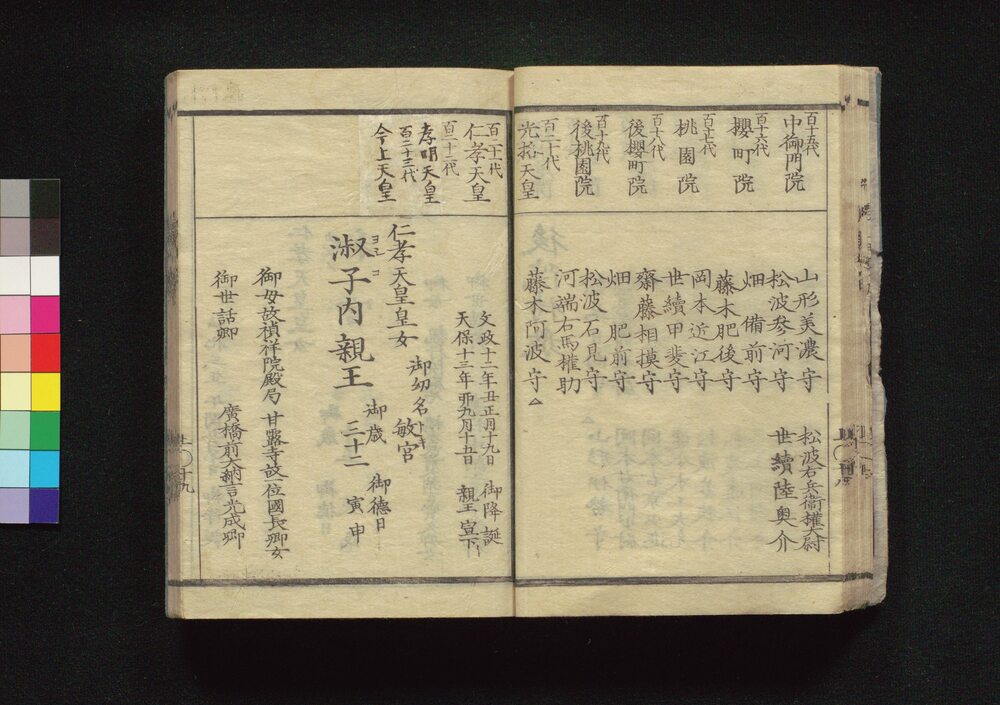 百十五代
中御門院
百十六代
櫻町院
百十七代
桃園院
百十八代
後櫻町院
百十九代
後桃園院
百二十代
光格天皇
山形美濃守
松波参河守
畑備前守
藤木肥後守
岡本近江守
世續甲斐守
齋藤相摸守
畑肥前守
松波石見守
河端右馬權助
藤木阿波守
松波右兵衞權大尉
世續陸奥介
百二十一代
仁孝天皇
百二十二代
孝明天皇
百二十三代
今上天皇
文政十二年丑正月十九日 御降誕
天保十三年卯九月十五日 親王宣下
仁孝天皇皇女
御幼名 敏宮
トキ
淑子内親王
ヨシコ
御歳 三十二
御德日 寅申
御母故禎祥院殿局 甘露寺故一位國長卿女
御世話卿 廣橋前大納言光成卿
上ノ十九